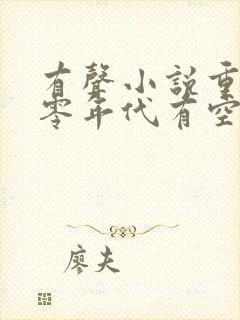 有聲小說重
零年代有空
廖夫